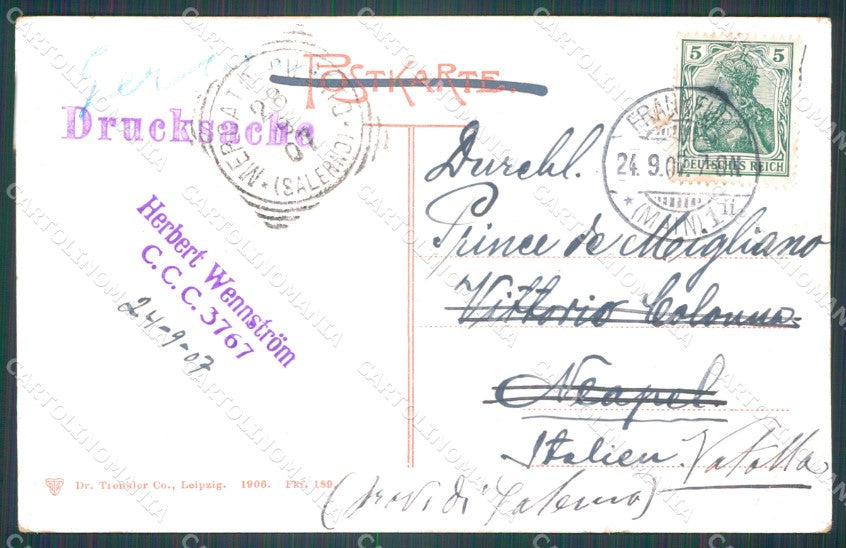 POSTKARTE.
Drucksache
MERCATE
(SALERNO)
5 5
DEUTSCHES REICH
FRANKFURT
24.9.07. 1-
* (MAIN) 1 II
Durchl.
Prince de Migliano
Vittorio Colonna.
Neapel.
Italien. Vatolla
(prov. di Salerno)
Herbert Wennström
C.C.C. 3767
24-9-07
Dr. Trenkler Co., Leipzig. 1906. Fkf. 189.
CARTOLINOMANIA